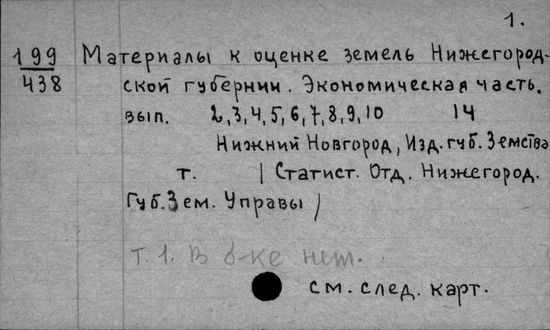 1.
199 Материалы к оценке земель Нижегород-
438 ской губернии. Экономическая часть.
вып. 2,3,4,5,6,7,8,9,10 14
Нижний Новгород, Изд. губ. Земства
т. | Статист. Отд. Нижегород.
Губ. Зем. Управы |
т. 1. В б-ке нет.
см. след. карт.